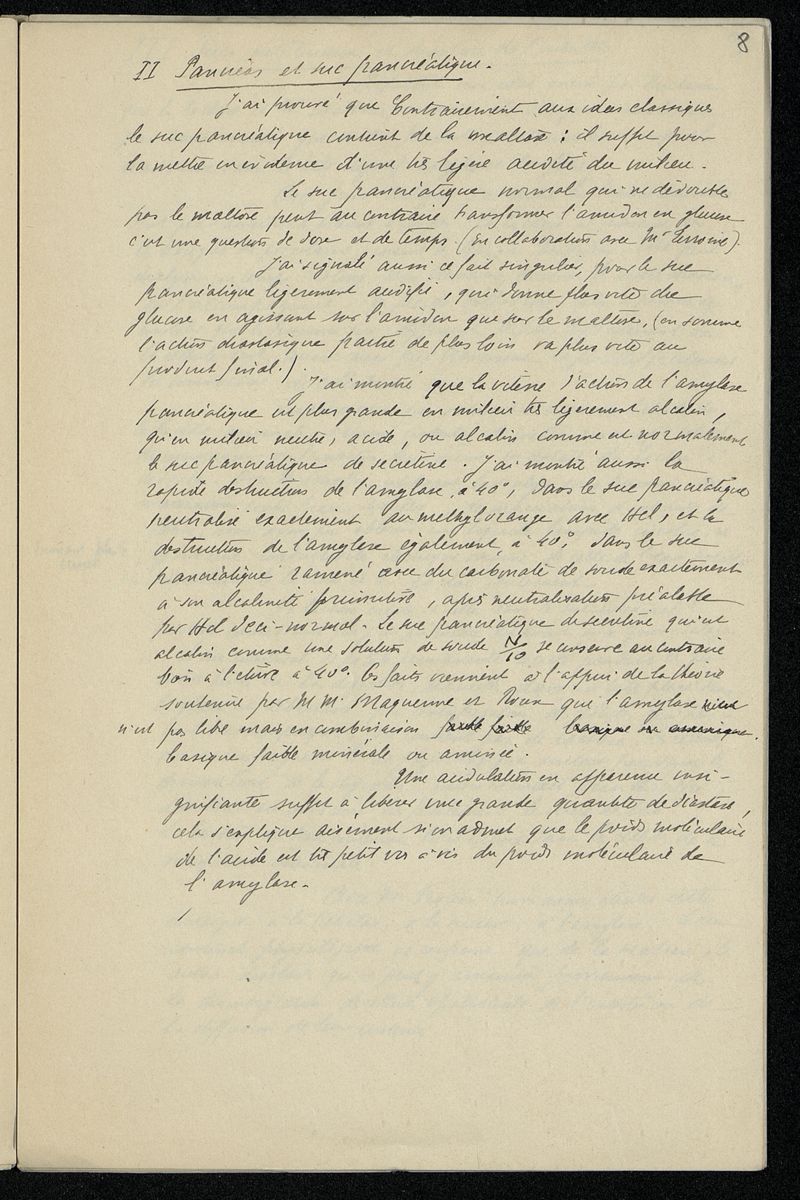 8
II Pancréas et suc pancréatique.
J'ai prouvé que Contrairement aux idées classiques
le suc pancréatique contient de la maltase : il suffit pour
la mettre en évidence d'une très légère acidité du milieu.
Le suc pancréatique normal qui ne dédouble
pas le maltose peut au contraire transformer l'amidon en glucose
c'est une question de dose et de temps. (En collaboration avec Mr Terroine)
J'ai signalé aussi ce fait singulier, pour le suc
pancréatique légèrement acidifié, qui donne plus vite du
glucose en agissant sur l'amidon que sur le maltose, (en somme
l'action diastasique partie de plus loin va plus vite au
produit final.)
J'ai montré que la vitesse d'action de l'amylase
pancréatique est plus grande en milieu très légèrement alcalin,
qu'en milieu neutre, acide, ou alcalin comme est normalement
le suc pancréatique de secrétine. J'ai montré aussi la
rapide destruction de l'amylase, à 40°, dans le suc pancréatique
neutralisé exactement au methylorange avec Hcl, et la
destruction de l'amylase également, à 40°, dans le suc
pancréatique ramené avec du carbonate de soude exactement
à son alcalinité primitive, après neutralisation préalable
par Hcl déci-normal. Le suc pancréatique de secrétine qui est
alcalin comme une solution de soude N/10 se conserve au contraire
bien à l'étuve à 40°. Ces faits viennent à l'appui de la théorie
soutenue par M M. Maquenne et Roux que l'amylase n'est
n'est pas libre mais en combinaison faible basique ou aminique.
basique faible minérale ou aminée.
Une acidulation en apparence insi-
gnifiante suffit à libérer une grande quantité de diastase,
cela s'explique aisément si on admet que le poids moléculaire
de l'acide est très petit vis à vis du poids moléculaire de
l'amylase.